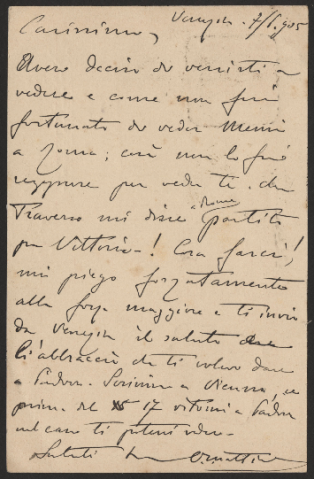 Venezia. 7/6.905
Carissimo,
Avevo deciso di venirti a
vedere e come non fui
fortunato di veder Memi
a Roma; così non lo fui
neppure per veder te. Da
Traverso mi disse a Roma partiti
per Vittorio-! Cosa farci!
mi piego forzatamente
alla forza maggiore e ti invio
da Venezia il saluto
l'abbraccio che ti volevo dare
a Padova. Scrivimi a Vienna, se
prima del 17 ritorni a Padova
nel caso ti potessi vedere.
Saluti